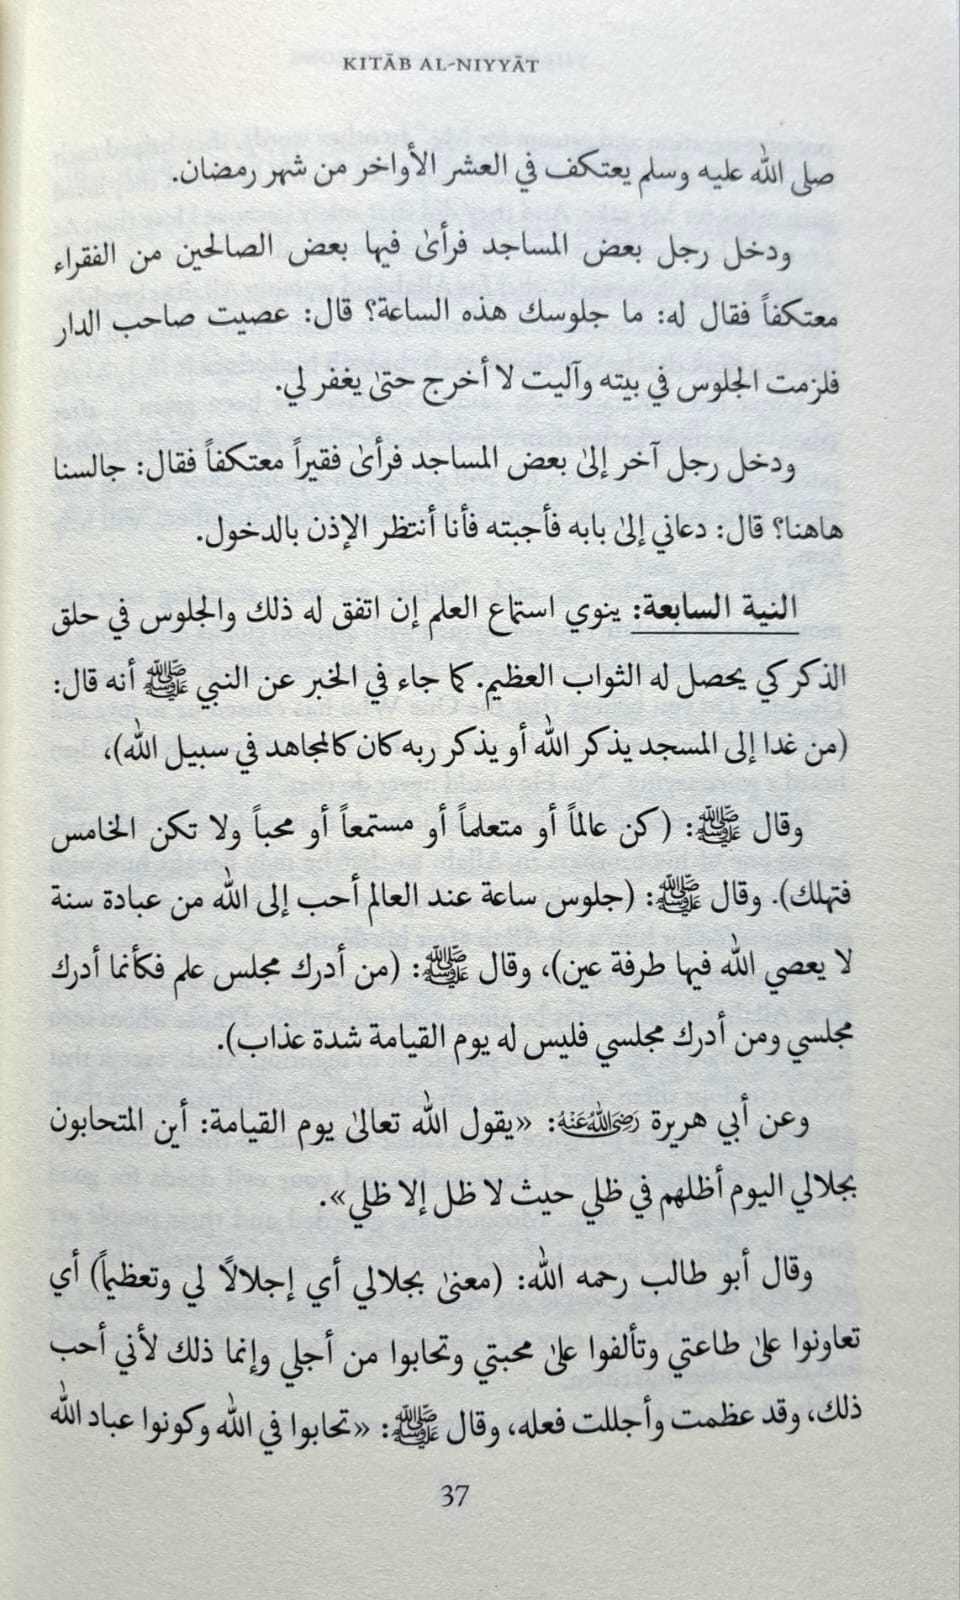 KITĀB AL-NIYYĀT
صلى الله عليه وسلم يعتكف في العشر الأواخر من شهر رمضان.
ودخل رجل بعض المساجد فرأىٰ فيها بعض الصالحين من الفقراء
معتكفاً فقال له: ما جلوسك هذه الساعة؟ قال: عصيت صاحب الدار
فلزمت الجلوس في بيته وآليت لا أخرج حتىٰ يغفر لي.
ودخل رجل آخر إلىٰ بعض المساجد فرأىٰ فقيراً معتكفاً فقال: جالسنا
هاهنا؟ قال: دعاني إلىٰ بابه فأجبته فأنا أنتظر الإذن بالدخول.
النية السابعة: ينوي استماع العلم إن اتفق له ذلك والجلوس في حلق
الذكر كي يحصل له الثواب العظيم. كما جاء في الخبر عن النبي ﷺ أنه قال:
(من غدا إلى المسجد يذكر الله أو يذكر ربه كان كالمجاهد في سبيل الله)،
وقال ﷺ: (كن عالماً أو متعلماً أو مستمعاً أو محباً ولا تكن الخامس
فتهلك). وقال ﷺ: (جلوس ساعة عند العالم أحب إلى الله من عبادة سنة
لا يعصي الله فيها طرفة عين)، وقال ﷺ: (من أدرك مجلس علم فكأنما أدرك
مجلسي ومن أدرك مجلسي فليس له يوم القيامة شدة عذاب).
وعن أبي هريرة رَضِيَ اللَّهُ عَنْهُ: «يقول الله تعالىٰ يوم القيامة: أين المتحابون
بجلالي اليوم أظلهم في ظلي حيث لا ظل إلا ظلي».
وقال أبو طالب رحمه الله: (معنىٰ بجلالي أي إجلالًا لي وتعظيماً) أي
تعاونوا علىٰ طاعتي وتألفوا علىٰ محبتي وتحابوا من أجلي وإنما ذلك لأني أحب
ذلك، وقد عظمت وأجللت فعله، وقال ﷺ: «تحابوا في الله وكونوا عباد الله
37